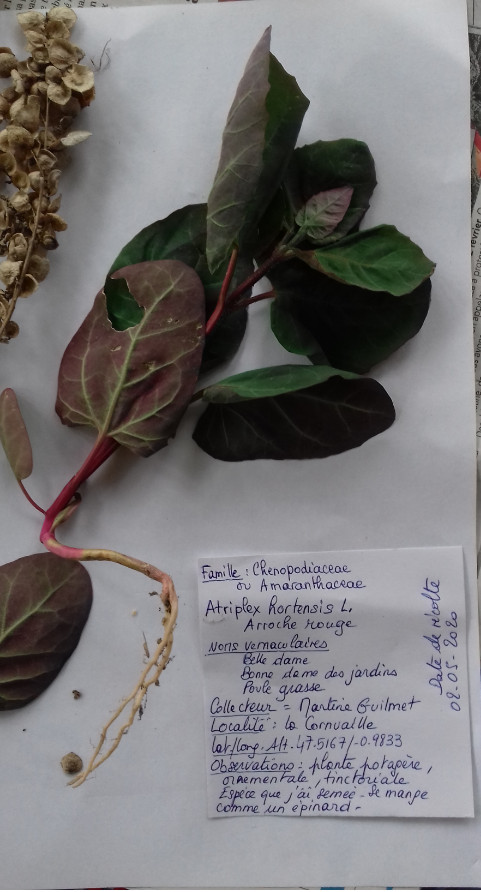 Famille : Chenopodiaceae
ou Amaranthaceae
Atriplex hortensis L.
Arroche rouge
noms vernaculaires
Belle dame
Bonne dame des jardins
Poule grasse
Collecteur = Martine Guilmet
Localité : la Cornuaille
lat/long. Alt. 47.5167/-0.9833
Observations : plante potagère,
ornementale, tinctoriale
Espèce que j'ai semée - Se mange
comme un épinard -
Date de récolte
02-05-2020